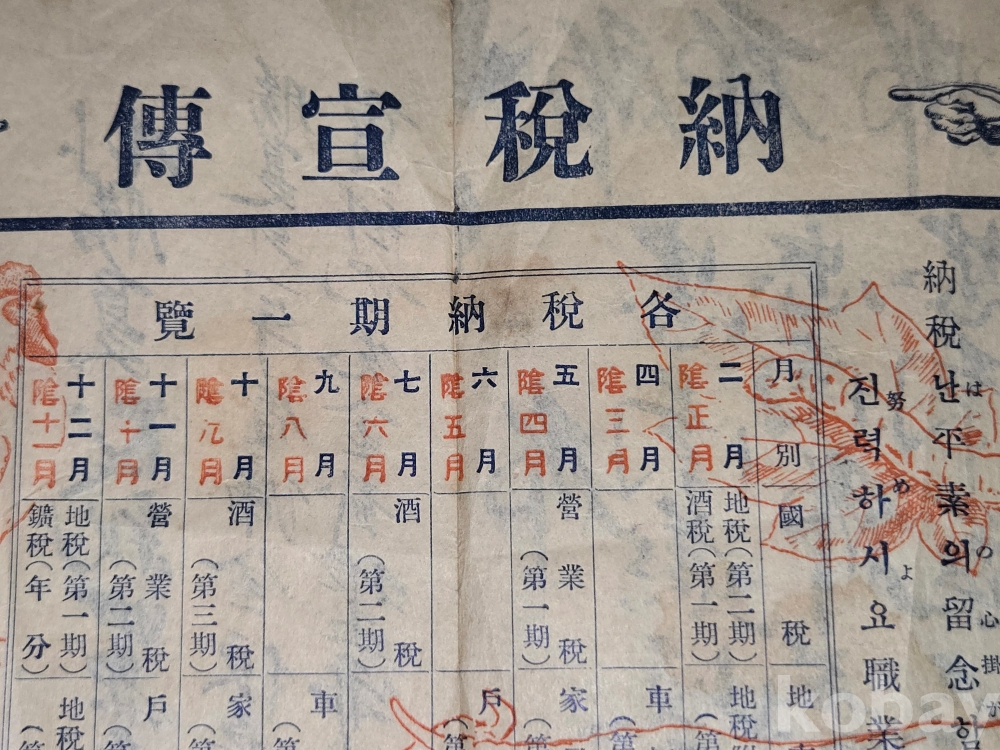 納稅宣傳
納稅난平素의留念하
は の心掛が
진력하시요職業
努めよ
各稅納期一覽
月別
國稅
地
二月
陰正月
地稅(第二期)
酒稅(第一期)
地稅附
(第
四月
陰三月
車
(第
五月
陰四月
營業稅
(第一期)
家
(第
六月
陰五月
戶
(第
七月
陰六月
酒稅
(第二期)
九月
陰八月
車
(第
十月
陰九月
酒稅
(第三期)
家
(第
十一月
陰十月
營業稅
(第二期)
戶
(第
十二月
陰十一月
地稅(第一期)
鑛稅(年分)
地稅
(第
kobay